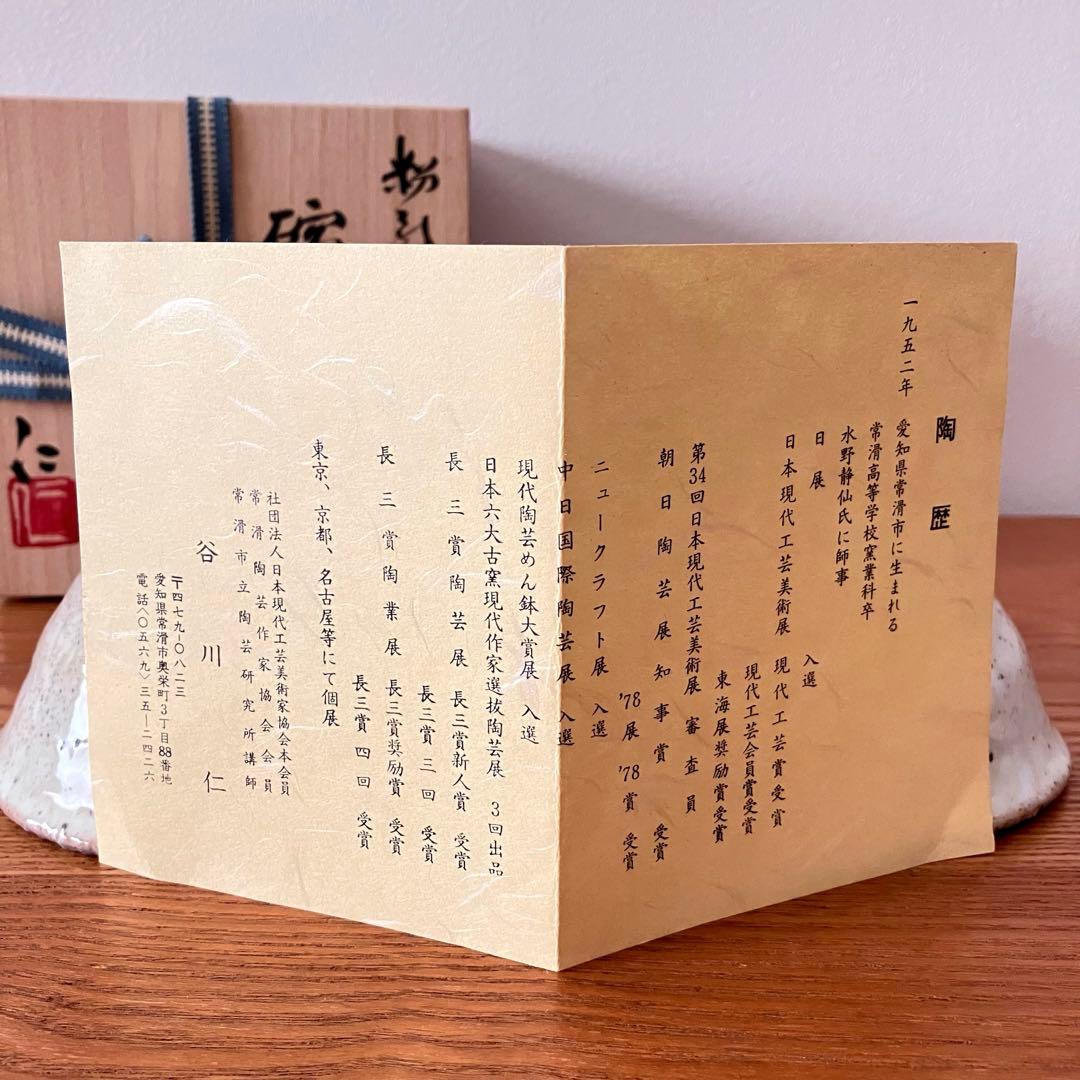 陶歴
一九五二年 愛知県常滑市に生まれる
常滑高等学校窯業科卒
水野静仙氏に師事
日展 入選
日本現代工芸美術展 現代工芸賞受賞
現代工芸会員賞受賞
東海展奨励賞受賞
第34回日本現代工芸美術展 審査員
朝日陶芸展知事賞 受賞
'78展 '78賞 受賞
ニュークラフト展 入選
中日国際陶芸展 入選
現代陶芸めん鉢大賞展 入選
日本六大古窯現代作家選抜陶芸展 3回出品
長三賞陶芸展 長三賞新人賞 受賞
長三賞三回 受賞
長三賞陶業展 長三賞奨励賞 受賞
長三賞四回 受賞
東京、京都、名古屋等にて個展
社団法人日本現代工芸美術家協会本会員
常滑陶芸作家協会会員
常滑市立陶芸研究所講師
谷川仁
〒四七九-〇八二三
愛知県常滑市奥栄町3丁目88番地
電話〈〇五六九〉三五-二四二六
粉引
碗
仁